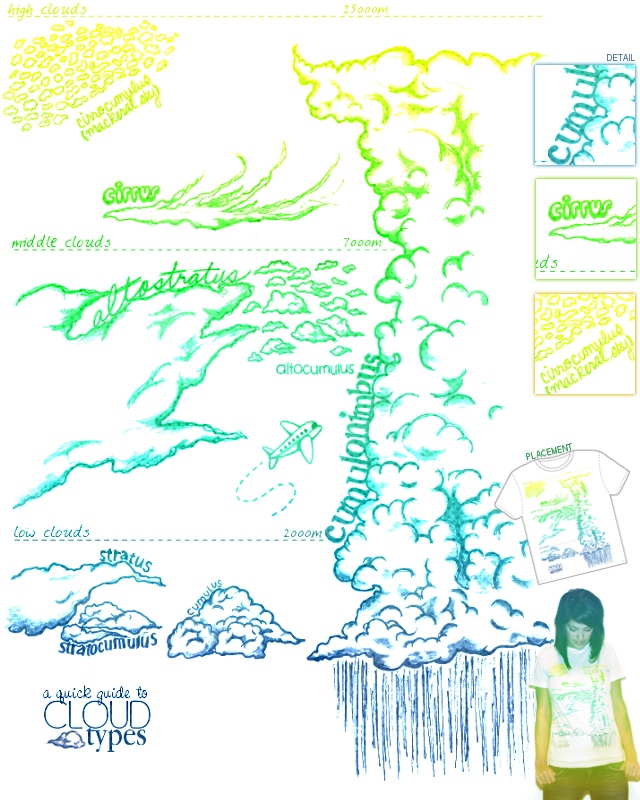 high clouds 13000m
cirrocumulus
(mackeral sky)
cirrus
middle clouds 7000m
altostratus
altocumulus
cumulonimbus
low clouds 2000m
stratus
cumulus
stratocumulus
a quick guide to
CLOUD
types
DETAIL
cumul
cirrus
uds
cirrocumulus
(mackeral sky)
PLACEMENT